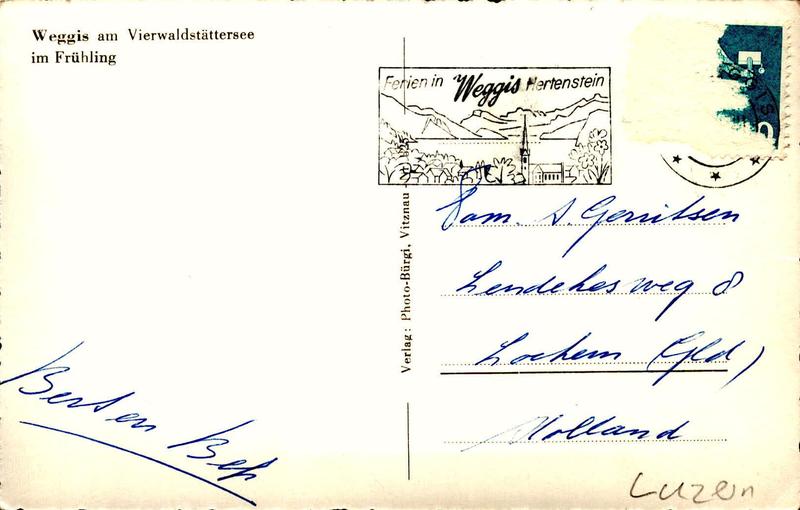 Weggis am Vierwaldstättersee
im Frühling
Ferien in Weggis Hertenstein
Verlag: Photo-Bürgi, Vitznau
Fam. S. Gerritsen
Lendekesweg 8
Lochem (Gld)
Holland
Bert en Bep
Luzern